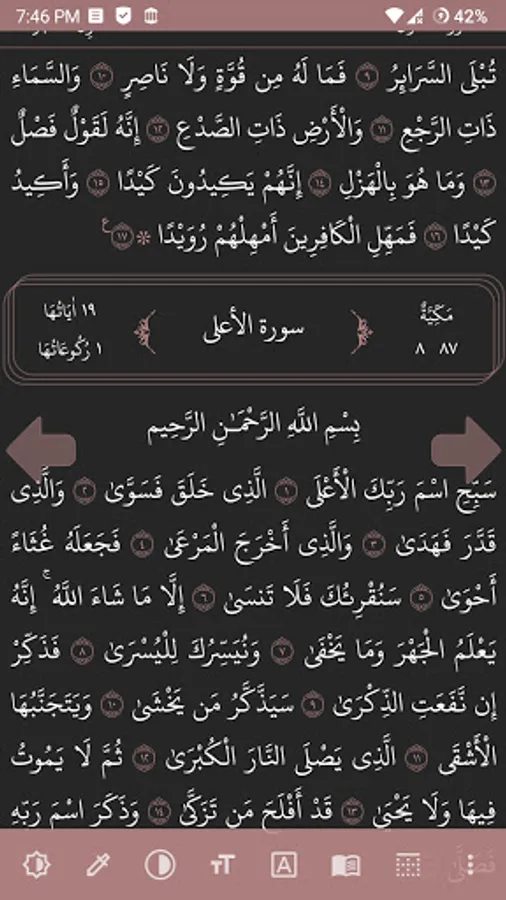 7:46 PM 42%
تُبْلَى السَّرَائِرُ ٩ فَمَا لَهُ مِن قُوَّةٍ وَلَا نَاصِرٍ ١٠ وَالسَّمَاءِ
ذَاتِ الرَّجْعِ ١١ وَالْأَرْضِ ذَاتِ الصَّدْعِ ١٢ إِنَّهُ لَقَوْلٌ فَصْلٌ
١٣ وَمَا هُوَ بِالْهَزْلِ ١٤ إِنَّهُمْ يَكِيدُونَ كَيْدًا ١٥ وَأَكِيدُ
كَيْدًا ١٦ فَمَهِّلِ الْكَافِرِينَ أَمْهِلْهُمْ رُوَيْدًا ۞ ١٧ ع
مَكِّيَّةٌ
٨٧ ٨
سورة الأعلى
١٩ اٰيَاتُهَا
١ رُكُوعَاتُهَا
بِسْمِ اللَّهِ الرَّحْمَٰنِ الرَّحِيمِ
سَبِّحِ اسْمَ رَبِّكَ الْأَعْلَى ١ الَّذِى خَلَقَ فَسَوَّىٰ ٢ وَالَّذِى
قَدَّرَ فَهَدَىٰ ٣ وَالَّذِى أَخْرَجَ الْمَرْعَىٰ ٤ فَجَعَلَهُ غُثَاءً
أَحْوَىٰ ٥ سَنُقْرِئُكَ فَلَا تَنسَىٰ ٦ إِلَّا مَا شَاءَ اللَّهُ ۚ إِنَّهُ
يَعْلَمُ الْجَهْرَ وَمَا يَخْفَىٰ ٧ وَنُيَسِّرُكَ لِلْيُسْرَىٰ ٨ فَذَكِّرْ
إِن نَّفَعَتِ الذِّكْرَىٰ ٩ سَيَذَّكَّرُ مَن يَخْشَىٰ ١٠ وَيَتَجَنَّبُهَا
الْأَشْقَى ١١ الَّذِى يَصْلَى النَّارَ الْكُبْرَىٰ ١٢ ثُمَّ لَا يَمُوتُ
فِيهَا وَلَا يَحْيَىٰ ١٣ قَدْ أَفْلَحَ مَن تَزَكَّىٰ ١٤ وَذَكَرَ اسْمَ رَبِّهِ
فَصَلَّىٰ